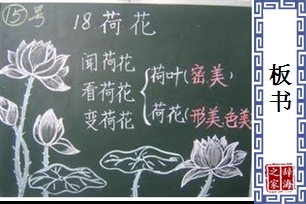 ⑮号
18荷花
闻荷花
看荷花
变荷花
荷叶(密美)
荷花(形美色美)
板书
辞海之家